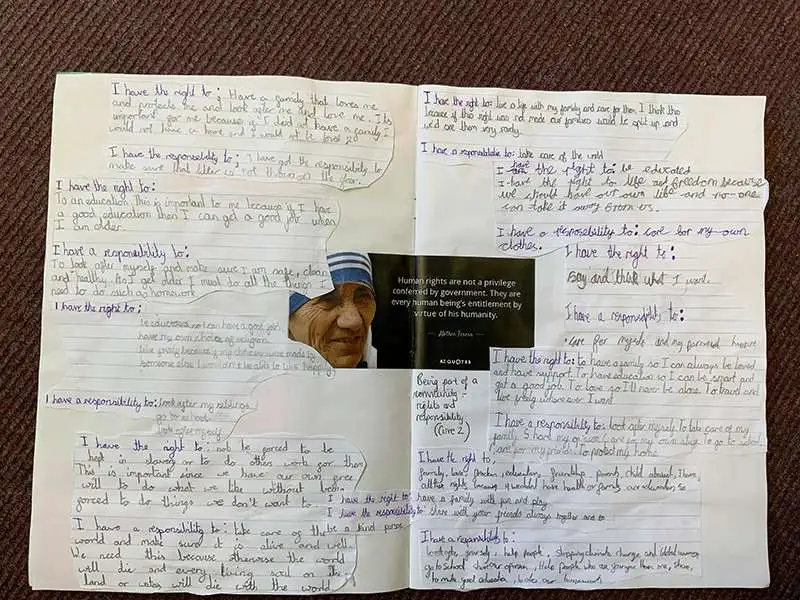 I have the right to; Have a family that loves me
and protects me and look after me and love me. Its
important for me because if I did not have a family I
would not have a home and I would not be
I have the responsibility to; I have got the responsibility to
make sure that litter is not thrown on the
I have the right to:
To an education. This is important to me because if I have
a good education then I can get a good job when
I am older.
I have a responsibility to:
To look after myself and make sure I am safe, clean
and healthy. As I get older I must do all the things I
need to do such as homework
I have the right to:
be educated so I can have a good job,
have my own choice of religion
live freely because if my choices were made by
someone else I wouldn't be able to live happily
I have a responsibility to: look after my siblings
go to school
look after myself
I have the right to: not be forced to be
kept in slavery or to do others work for them
This is important since we have our own free
will to do what we like without bein
forced to do things we don't want to
I have a responsibility to: take care of the
world and make sure it is alive and well
We need this because otherwise the world
will die and every living soul on its
land or water will die with the world
I have the right to: have a family with fun and play
I have the responsibility to: share with your friends always together and to
be a kind person
Human rights are not a privilege
conferred by government. They are
every human being's entitlement by
virtue of his humanity.
Mother Teresa
AZ QUOTES
Being part of a
community -
rights and
responsibility
I have the right to: live a life with my family and care for them. I think this
because if this right was not made our families would be split up and
we'd see them very rarely.
I have a responsibility to: take care of the world
I have the right to: be educated
I have the right to life and freedom because
we should have our own life and no one
can take it away from us.
I have a responsibility to: care for my own
clothes.
I have the right to:
say and think what I want.
I have a responsibility to:
care for myself and my personal
I have the right to: to have a family so I can always be loved
and have support. To have education so I can be smart and
get a good job. To love so I'll never be alone. To travel and
live freely where ever I want.
I have a responsibility to: look after myself. To take care of my
family. To go to school
care for my friends. To protect my home.
I have the right to,
family, love, freedom, education, friendship
I have a responsibility to:
look after yourself, help people, stopping climate change and Global warming
go to school, Help people who are younger than me, share,